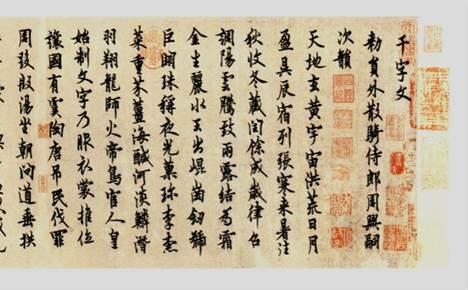 千字文
勑員外散騎侍郎周興嗣
次韻
天地玄黃宇宙洪荒日月
盈昃辰宿列張寒来暑往
秋收冬藏閏餘成歲律召
調陽雲騰致雨露結為霜
金生麗水玉出崐崗劒號
巨闕珠稱夜光菓珎李柰
菜重芥薑海鹹河淡鱗潛
羽翔龍師火帝鳥官人皇
始制文字乃服衣裳推位
讓國有虞陶唐弔民伐罪
周發殷湯坐朝問道垂拱